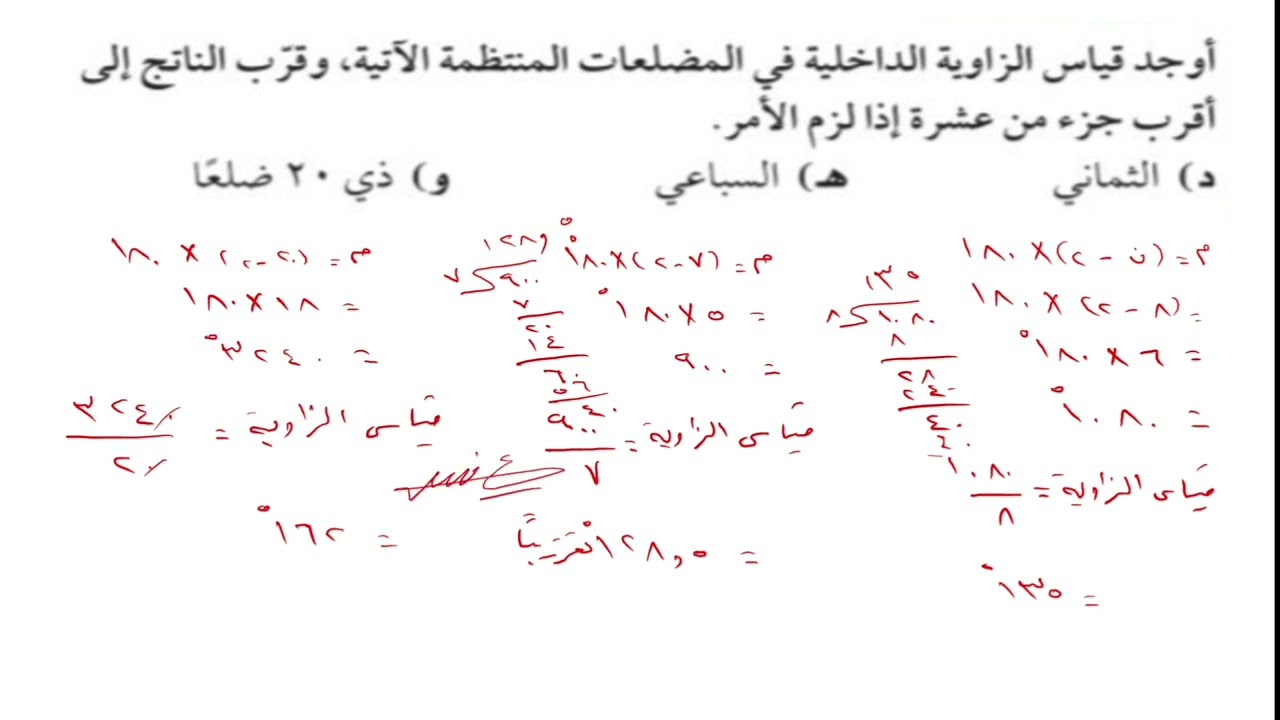 أوجد قياس الزاوية الداخلية في المضلعات المنتظمة الآتية، وقرّب الناتج إلى
أقرب جزء من عشرة إذا لزم الأمر.
د) الثماني
م = (ن - ٢) × ١٨٠
= (٨ - ٢) × ١٨٠
= ٦ × ١٨٠°
= ١٠٨٠°
قياس الزاوية = ١٠٨٠ / ٨
= ١٣٥°
١٣٥
٨ ١٠٨٠
٨
٢٨
٢٤
٤٠
٤٠
هـ) السباعي
م = (٧ - ٢) × ١٨٠°
= ٥ × ١٨٠°
= ٩٠٠
قياس الزاوية = ٩٠٠ / ٧
= ١٢٨,٥° تقريبًا
١٢٨,٥
٧ ٩٠٠
٧
٢٠
١٤
٦٠
٥٦
٤٠
و) ذي ٢٠ ضلعًا
م = (٢٠ - ٢) × ١٨٠
= ١٨ × ١٨٠
= ٣٢٤٠°
قياس الزاوية = ٣٢٤٠ / ٢٠
= ١٦٢°